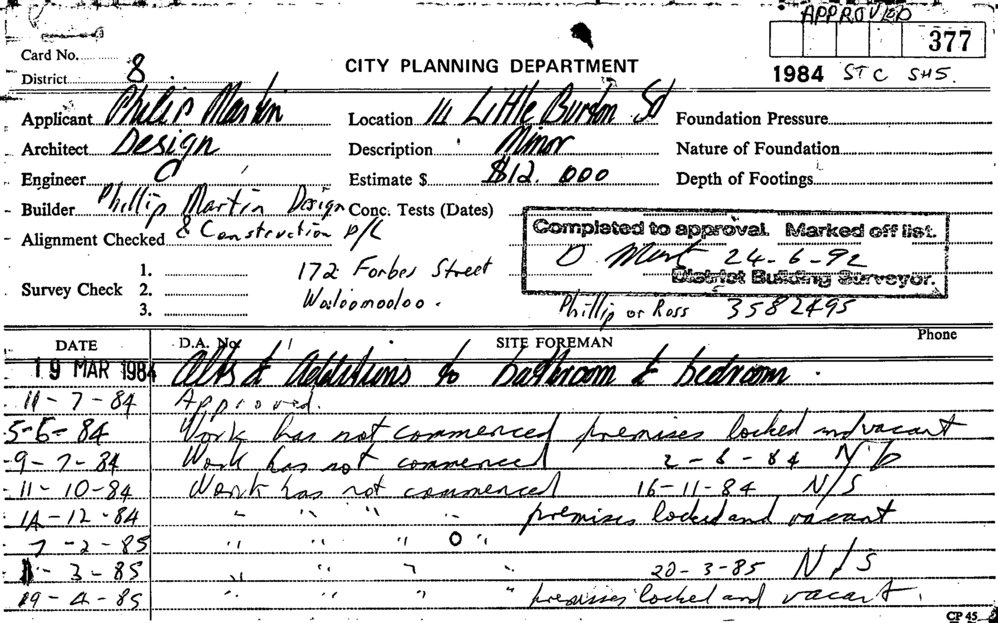 APPROVED
377
Card No.
CITY PLANNING DEPARTMENT
1984 STC SHS.
District 8
Applicant Philip Martin Location Little Burton St Foundation Pressure
Architect Design Description Minor Nature of Foundation
Engineer Estimate $ $12.000 Depth of Footings
Builder Phillip Martin Design Conc. Tests (Dates)
Alignment Checked & Construction P/L
Completed to approval. Marked off list.
24-6-92
District Building Surveyor.
Survey Check 1. 2. 3.
172 Forbes Street
Wooloomooloo.
Phillip or Ross 3582495
DATE D.A. No. SITE FOREMAN Phone
19 MAR 1984 Alts & Additions to bathroom & bedroom.
11-7-84 Approved.
5-6-84 Work has not commenced premises locked and vacant
9-7-84 Work has not commenced 2-8-84
11-10-84 Work has not commenced 16-11-84 N/S
14-12-84 " " " " premises locked and vacant
7-2-85 " " " "
3-85 " " " " 20-3-85 N/S
19-4-85 " " " " premises locked and vacant.
CP 45